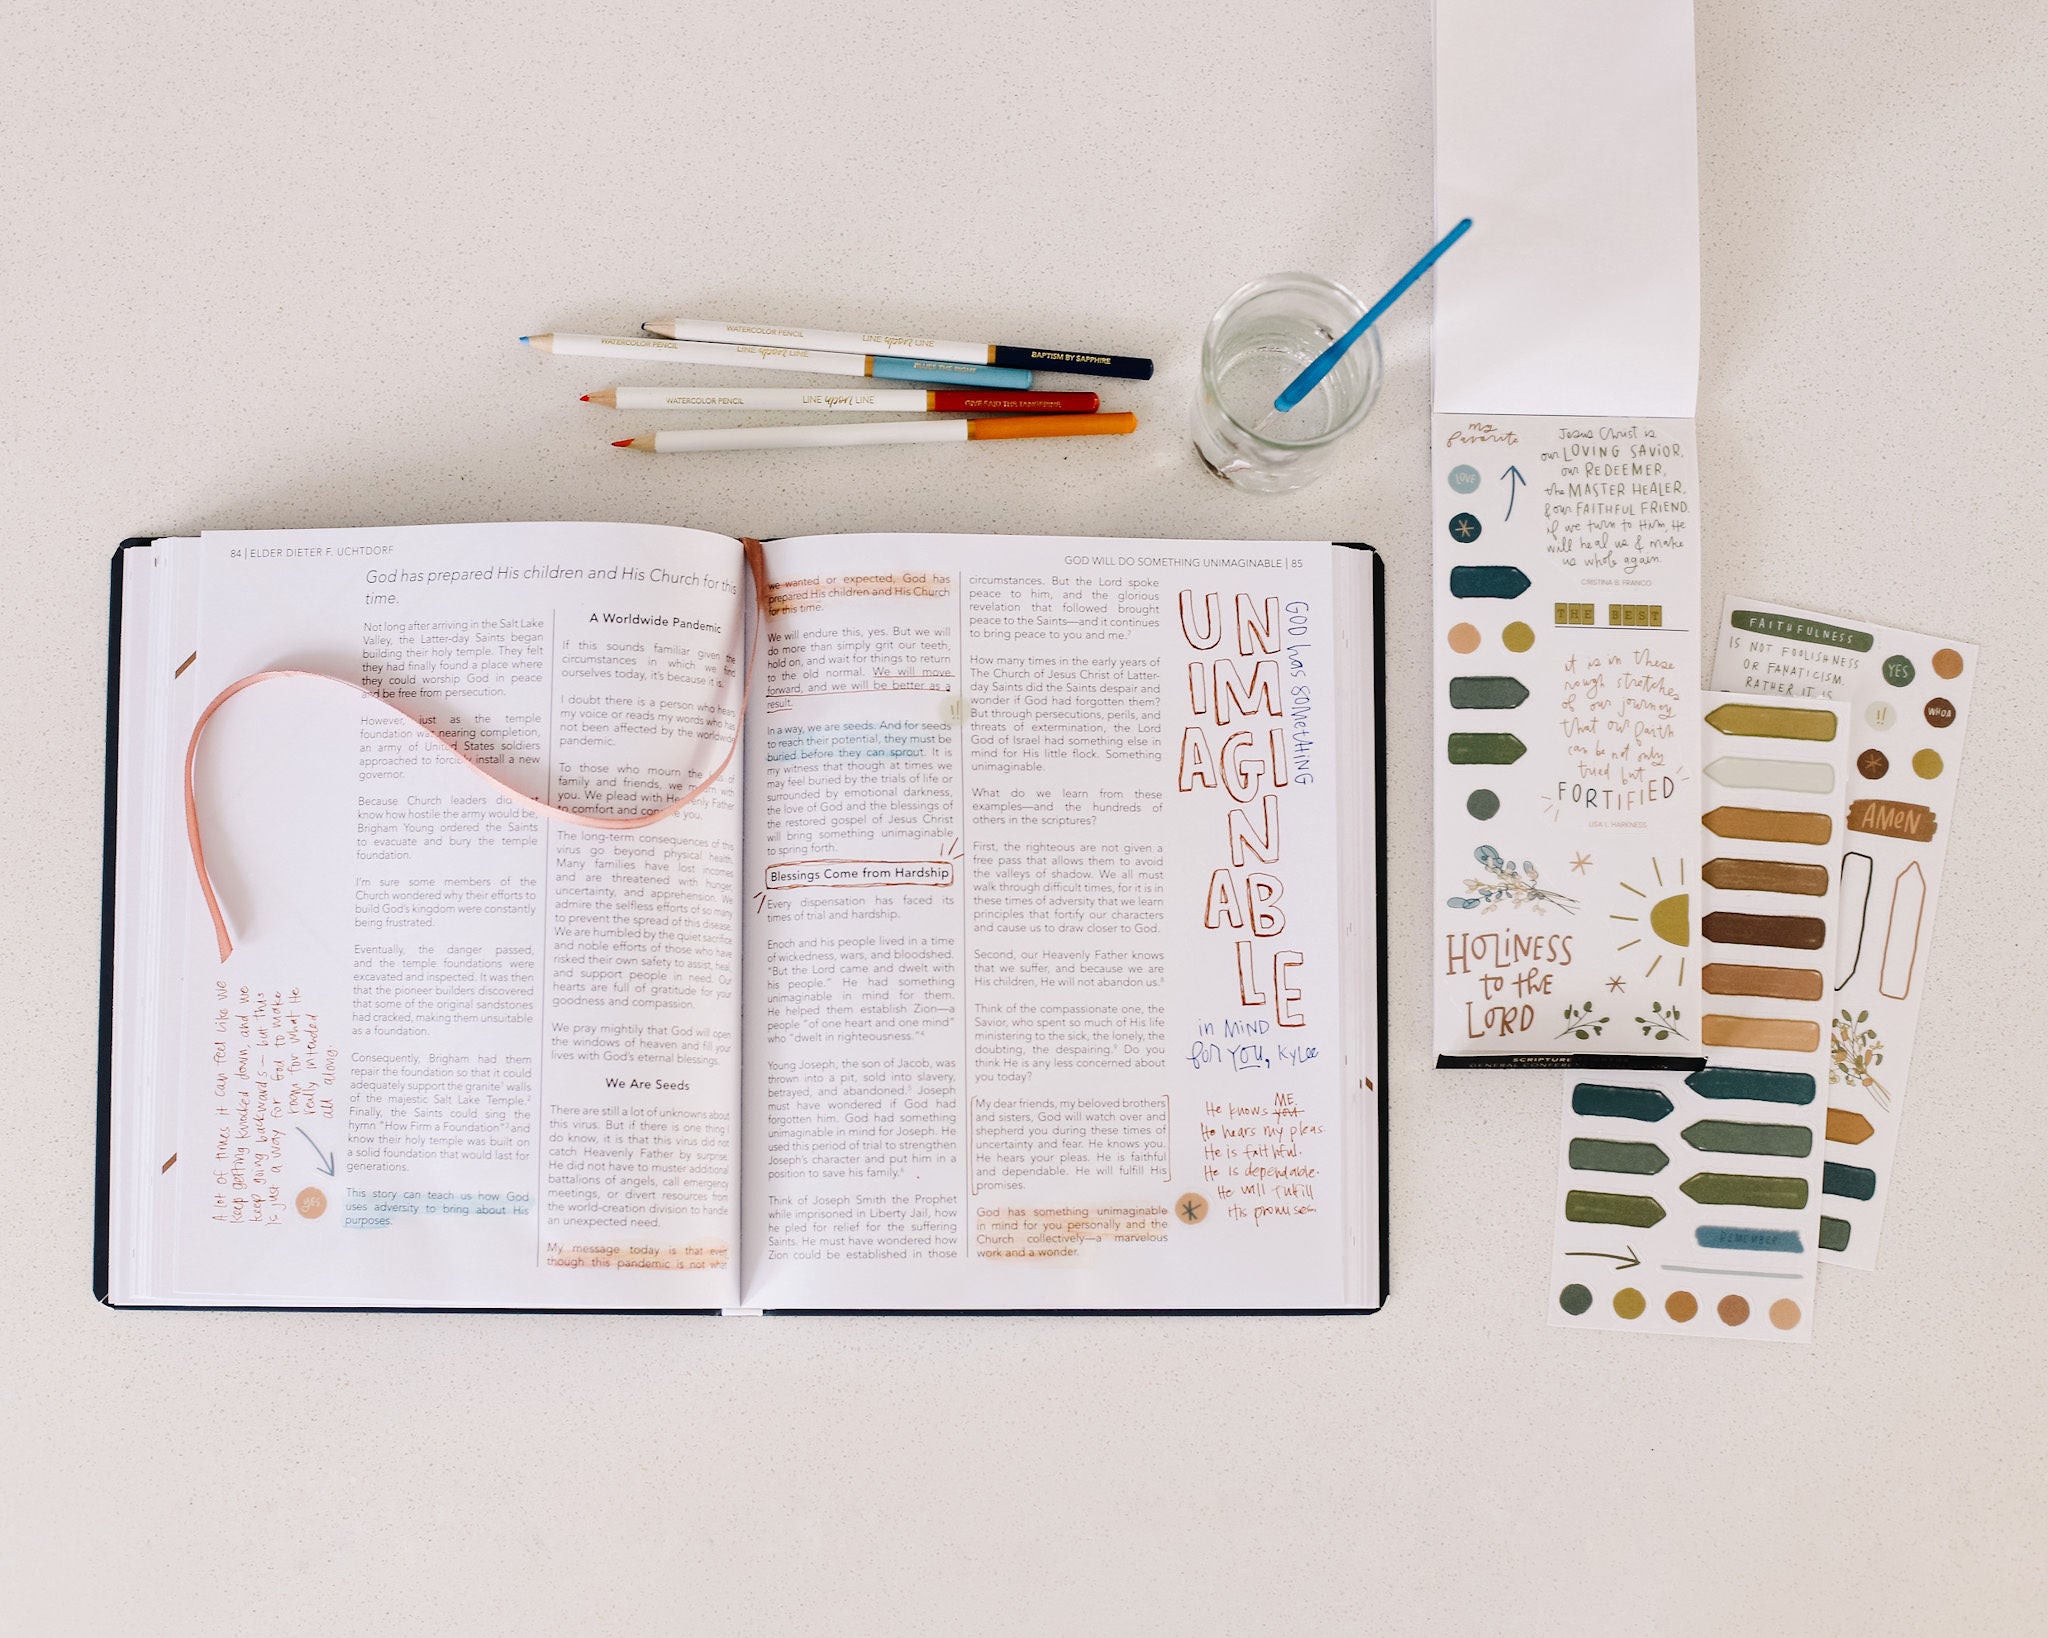 WATERCOLOR PENCIL LINE upon LINE BAPTISM BY SAPPHIRE
WATERCOLOR PENCIL LINE upon LINE BLUES THE RIGHT
WATERCOLOR PENCIL LINE upon LINE GIVE SAID THE TANGERINE
84 | ELDER DIETER F. UCHTDORF
God has prepared His children and His Church for this
time.
Not long after arriving in the Salt Lake
Valley, the Latter-day Saints began
building their holy temple. They felt
they had finally found a place where
they could worship God in peace
and be free from persecution.
However, just as the temple
foundation was nearing completion,
an army of United States soldiers
approached to forcibly install a new
governor.
Because Church leaders did not
know how hostile the army would be,
Brigham Young ordered the Saints
to evacuate and bury the temple
foundation.
I'm sure some members of the
Church wondered why their efforts to
build God's kingdom were constantly
being frustrated.
Eventually, the danger passed,
and the temple foundations were
excavated and inspected. It was then
that the pioneer builders discovered
that some of the original sandstones
had cracked, making them unsuitable
as a foundation.
Consequently, Brigham had them
repair the foundation so that it could
adequately support the granite¹ walls
of the majestic Salt Lake Temple.²
Finally, the Saints could sing the
hymn "How Firm a Foundation"³ and
know their holy temple was built on
a solid foundation that would last for
generations.
This story can teach us how God
uses adversity to bring about His
purposes.
A lot of times it can feel like we
keep getting knocked down, and we
keep going backwards - but this
is just a way for God to make
room for what He
really intended
all along.
YES
A Worldwide Pandemic
If this sounds familiar given the
circumstances in which we find
ourselves today, it's because it is.
I doubt there is a person who hears
my voice or reads my words who has
not been affected by the worldwide
pandemic.
To those who mourn the loss of
family and friends, we mourn with
you. We plead with Heavenly Father
to comfort and console you.
The long-term consequences of this
virus go beyond physical health.
Many families have lost incomes
and are threatened with hunger,
uncertainty, and apprehension. We
admire the selfless efforts of so many
to prevent the spread of this disease.
We are humbled by the quiet sacrifice
and noble efforts of those who have
risked their own safety to assist, heal,
and support people in need. Our
hearts are full of gratitude for your
goodness and compassion.
We pray mightily that God will open
the windows of heaven and fill your
lives with God's eternal blessings.
We Are Seeds
There are still a lot of unknowns about
this virus. But if there is one thing I
do know, it is that this virus did not
catch Heavenly Father by surprise.
He did not have to muster additional
battalions of angels, call emergency
meetings, or divert resources from
the world-creation division to handle
an unexpected need.
My message today is that even
though this pandemic is not what
GOD WILL DO SOMETHING UNIMAGINABLE | 85
we wanted or expected, God has
prepared His children and His Church
for this time.
We will endure this, yes. But we will
do more than simply grit our teeth,
hold on, and wait for things to return
to the old normal. We will move
forward, and we will be better as a
result.
!!
In a way, we are seeds. And for seeds
to reach their potential, they must be
buried before they can sprout. It is
my witness that though at times we
may feel buried by the trials of life or
surrounded by emotional darkness,
the love of God and the blessings of
the restored gospel of Jesus Christ
will bring something unimaginable
to spring forth.
Blessings Come from Hardship
Every dispensation has faced its
times of trial and hardship.
Enoch and his people lived in a time
of wickedness, wars, and bloodshed.
"But the Lord came and dwelt with
his people." He had something
unimaginable in mind for them.
He helped them establish Zion—a
people "of one heart and one mind"
who "dwelt in righteousness."⁴
Young Joseph, the son of Jacob, was
thrown into a pit, sold into slavery,
betrayed, and abandoned.⁵ Joseph
must have wondered if God had
forgotten him. God had something
unimaginable in mind for Joseph. He
used this period of trial to strengthen
Joseph's character and put him in a
position to save his family.⁶
Think of Joseph Smith the Prophet
while imprisoned in Liberty Jail, how
he pled for relief for the suffering
Saints. He must have wondered how
Zion could be established in those
circumstances. But the Lord spoke
peace to him, and the glorious
revelation that followed brought
peace to the Saints—and it continues
to bring peace to you and me.⁷
How many times in the early years of
The Church of Jesus Christ of Latter-
day Saints did the Saints despair and
wonder if God had forgotten them?
But through persecutions, perils, and
threats of extermination, the Lord
God of Israel had something else in
mind for His little flock. Something
unimaginable.
What do we learn from these
examples—and the hundreds of
others in the scriptures?
First, the righteous are not given a
free pass that allows them to avoid
the valleys of shadow. We all must
walk through difficult times, for it is in
these times of adversity that we learn
principles that fortify our characters
and cause us to draw closer to God.
Second, our Heavenly Father knows
that we suffer, and because we are
His children, He will not abandon us.⁸
Think of the compassionate one, the
Savior, who spent so much of His life
ministering to the sick, the lonely, the
doubting, the despairing.⁹ Do you
think He is any less concerned about
you today?
My dear friends, my beloved brothers
and sisters, God will watch over and
shepherd you during these times of
uncertainty and fear. He knows you.
He hears your pleas. He is faithful
and dependable. He will fulfill His
promises.
God has something unimaginable
in mind for you personally and the
Church collectively—a marvelous
work and a wonder.
GOD has SOMETHING
UN
IM
AGI
N
AB
LE
in MIND
for YOU, KYLEE
He knows you ME.
He hears my pleas.
He is faithful.
He is dependable.
He will fulfill
His promises.
my
favorite
LOVE
Jesus Christ is
our LOVING SAVIOR,
our REDEEMER,
the MASTER HEALER,
& our FAITHFUL FRIEND.
if we turn to Him, He
will heal us & make
us whole again.
CRISTINA B. FRANCO
THE BEST
it is in these
rough stretches
of our journey
that our faith
can be not only
tried but
FORTIFIED
LISA L. HARKNESS
HOLINESS
to the
LORD
SCRIPTURE
GENERAL CONFERENCE
FAITHFULNESS
IS NOT FOOLISHNESS
OR FANATICISM.
RATHER IT IS
YES
!!
WHOA
AMEN
REMEMBER